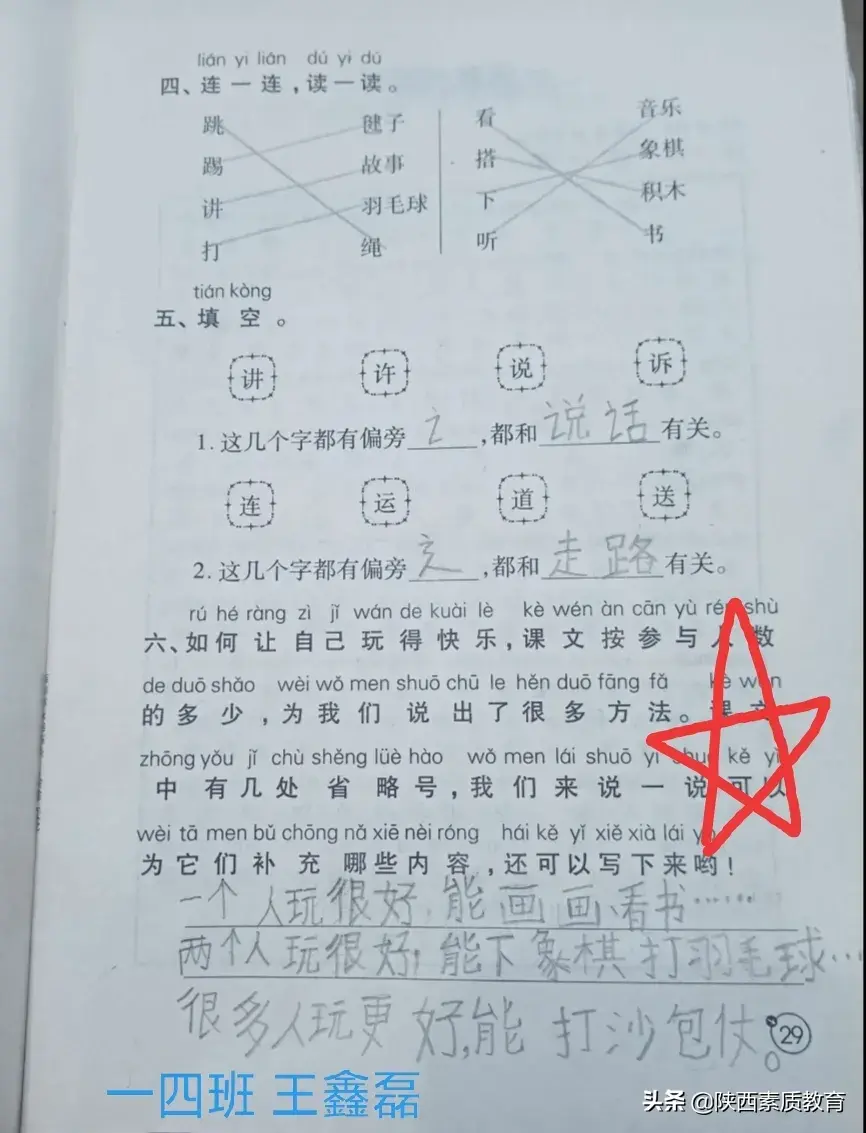 lián yi lián dú yi dú
四、连一连，读一读。
跳 毽子 看 音乐
踢 故事 搭 象棋
讲 羽毛球 下 积木
打 绳 听 书
tián kòng
五、填空。
讲 许 说 诉
1. 这几个字都有偏旁讠，都和说话有关。
连 运 道 送
2. 这几个字都有偏旁辶，都和走路有关。
rú hé ràng zì jǐ wán de kuài lè kè wén àn cān yù rén shù
六、如何让自己玩得快乐，课文按参与人数
de duō shǎo wèi wǒ men shuō chū le hěn duō fāng fǎ kè wén
的多少，为我们说出了很多方法。课文
zhōng yǒu jǐ chù shěng lüè hào wǒ men lái shuō yi shuō kě yǐ
中有几处省略号，我们来说一说可以
wèi tā men bǔ chōng nǎ xiē nèi róng hái kě yǐ xiě xià lái yo
为它们补充哪些内容，还可以写下来哟！
一个人玩很好，能画画、看书……
两个人玩很好，能下象棋打羽毛球…
很多人玩更好，能打沙包仗。
29
一四班 王鑫磊
头条 @陕西素质教育